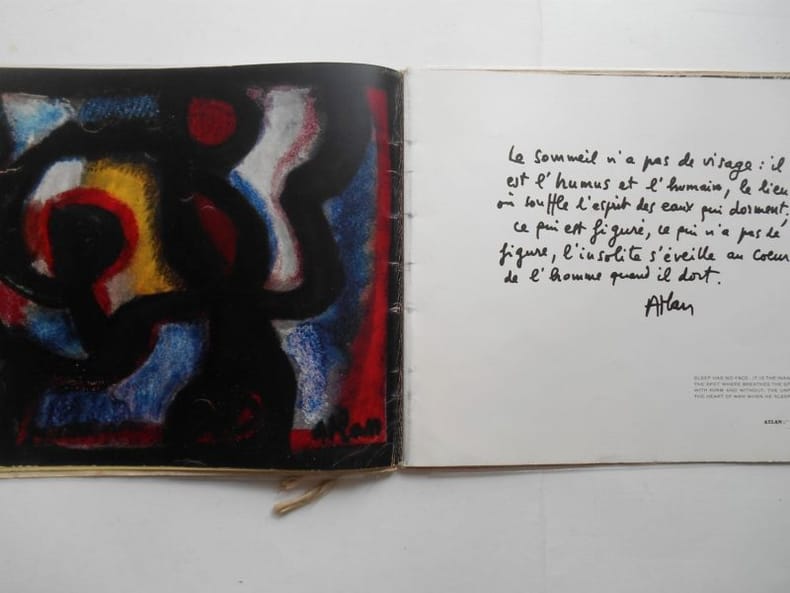 atlan
Le sommeil n'a pas de visage : il
est l'humus et l'humain, le lieu
où souffle l'esprit des eaux qui dorment.
ce qui est figuré, ce qui n'a pas de
figure, l'insolite s'éveille au coeur
de l'homme quand il dort.
Atlan
SLEEP HAS NO FACE: IT IS THE
THE SPOT WHERE BREATHES THE
WITH FORM AND WITHOUT, THE
THE HEART OF MAN WHEN HE
ATLAN